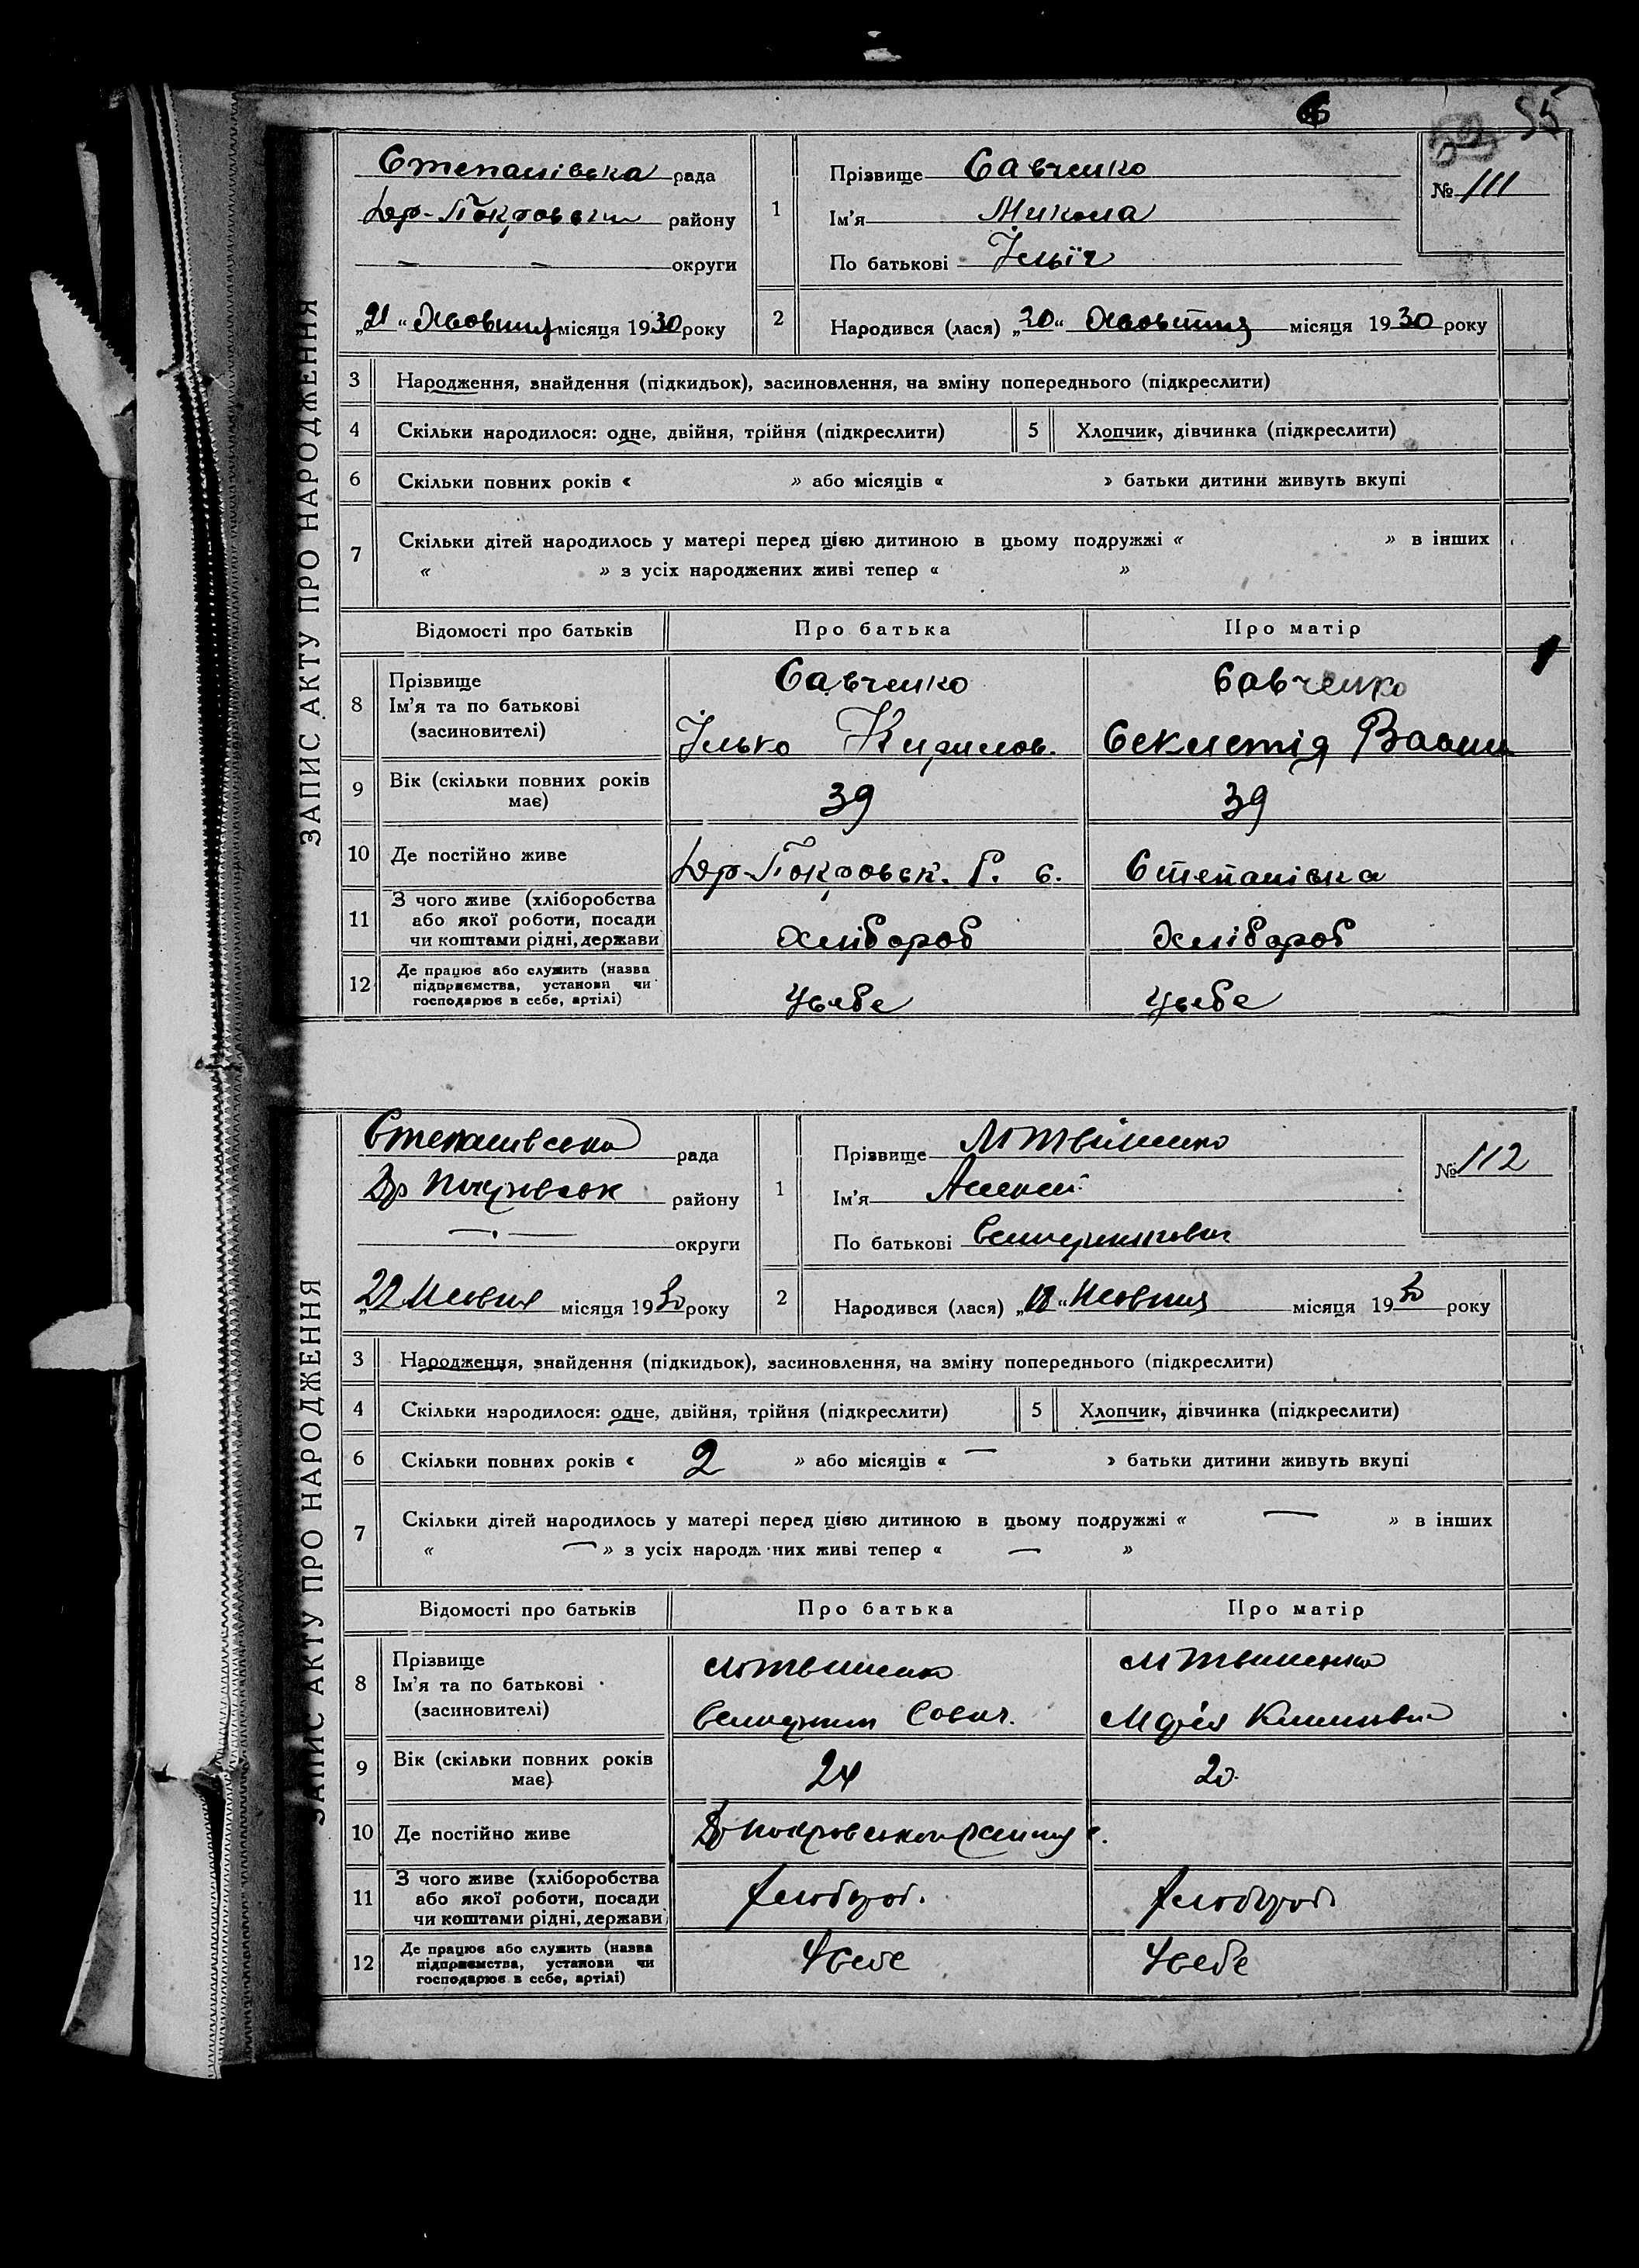 55
ЗАПИС АКТУ ПРО НАРОДЖЕННЯ
Степанівська рада
Др-Покровськ району
— — округи
„21“ Жовтня місяця 1930 року
1
Прізвище Савченко
Ім'я Микола
По батькові Ільїч
№ 111
2
Народився (лася) „20“ Жовтня місяця 1930 року
3 Народження, знайдення (підкидьок), засиновлення, на зміну попереднього (підкреслити)
4 Скільки народилося: одне, двійня, трійня (підкреслити) 5 Хлопчик, дівчинка (підкреслити)
6 Скільки повних років « » або місяців « » батьки дитини живуть вкупі
7 Скільки дітей народилось у матері перед цією дитиною в цьому подружжі « » в інших
« » з усіх народжених живі тепер « »
Відомості про батьків Про батька Про матір
8 Прізвище
Ім'я та по батькові
(засиновителі)
Савченко
Ілько Кирилов.
Савченко
Секлетія
9 Вік (скільки повних років
має)
39 39
10 Де постійно живе Др-Покровськ. Р. с. Степанівка
11 З чого живе (хліборобства
або якої роботи, посади
чи коштами рідні, держави
Хлібороб Хлібороб
12 Де працює або служить (назва
підприємства, установи чи
господарює в себе, артілі)
Усебе Усебе
ЗАПИС АКТУ ПРО НАРОДЖЕННЯ
Степанівська рада
Др Покровськ району
— — округи
„22 Жовтня місяця 1930 року
1
Прізвище Литвиненко
Ім'я Алексей
По батькові
№ 112
2
Народився (лася) Жовтня місяця 1930 року
3 Народження, знайдення (підкидьок), засиновлення, на зміну попереднього (підкреслити)
4 Скільки народилося: одне, двійня, трійня (підкреслити) 5 Хлопчик, дівчинка (підкреслити)
6 Скільки повних років « 2 » або місяців « — » батьки дитини живуть вкупі
7 Скільки дітей народилось у матері перед цією дитиною в цьому подружжі « — » в інших
« — » з усіх народж них живі тепер « — »
Відомості про батьків Про батька Про матір
8 Прізвище
Ім'я та по батькові
(засиновителі)
Литвиненко
Литвиненко
9 Вік (скільки повних років
має)
24 20
10 Де постійно живе
11 З чого живе (хліборобства
або якої роботи, посади
чи коштами рідні, держави
Хлібороб. Хлібороб
12 Де працює або служить (назва
підприємства, установи чи
господарює в себе, артілі)
Усебе Усебе